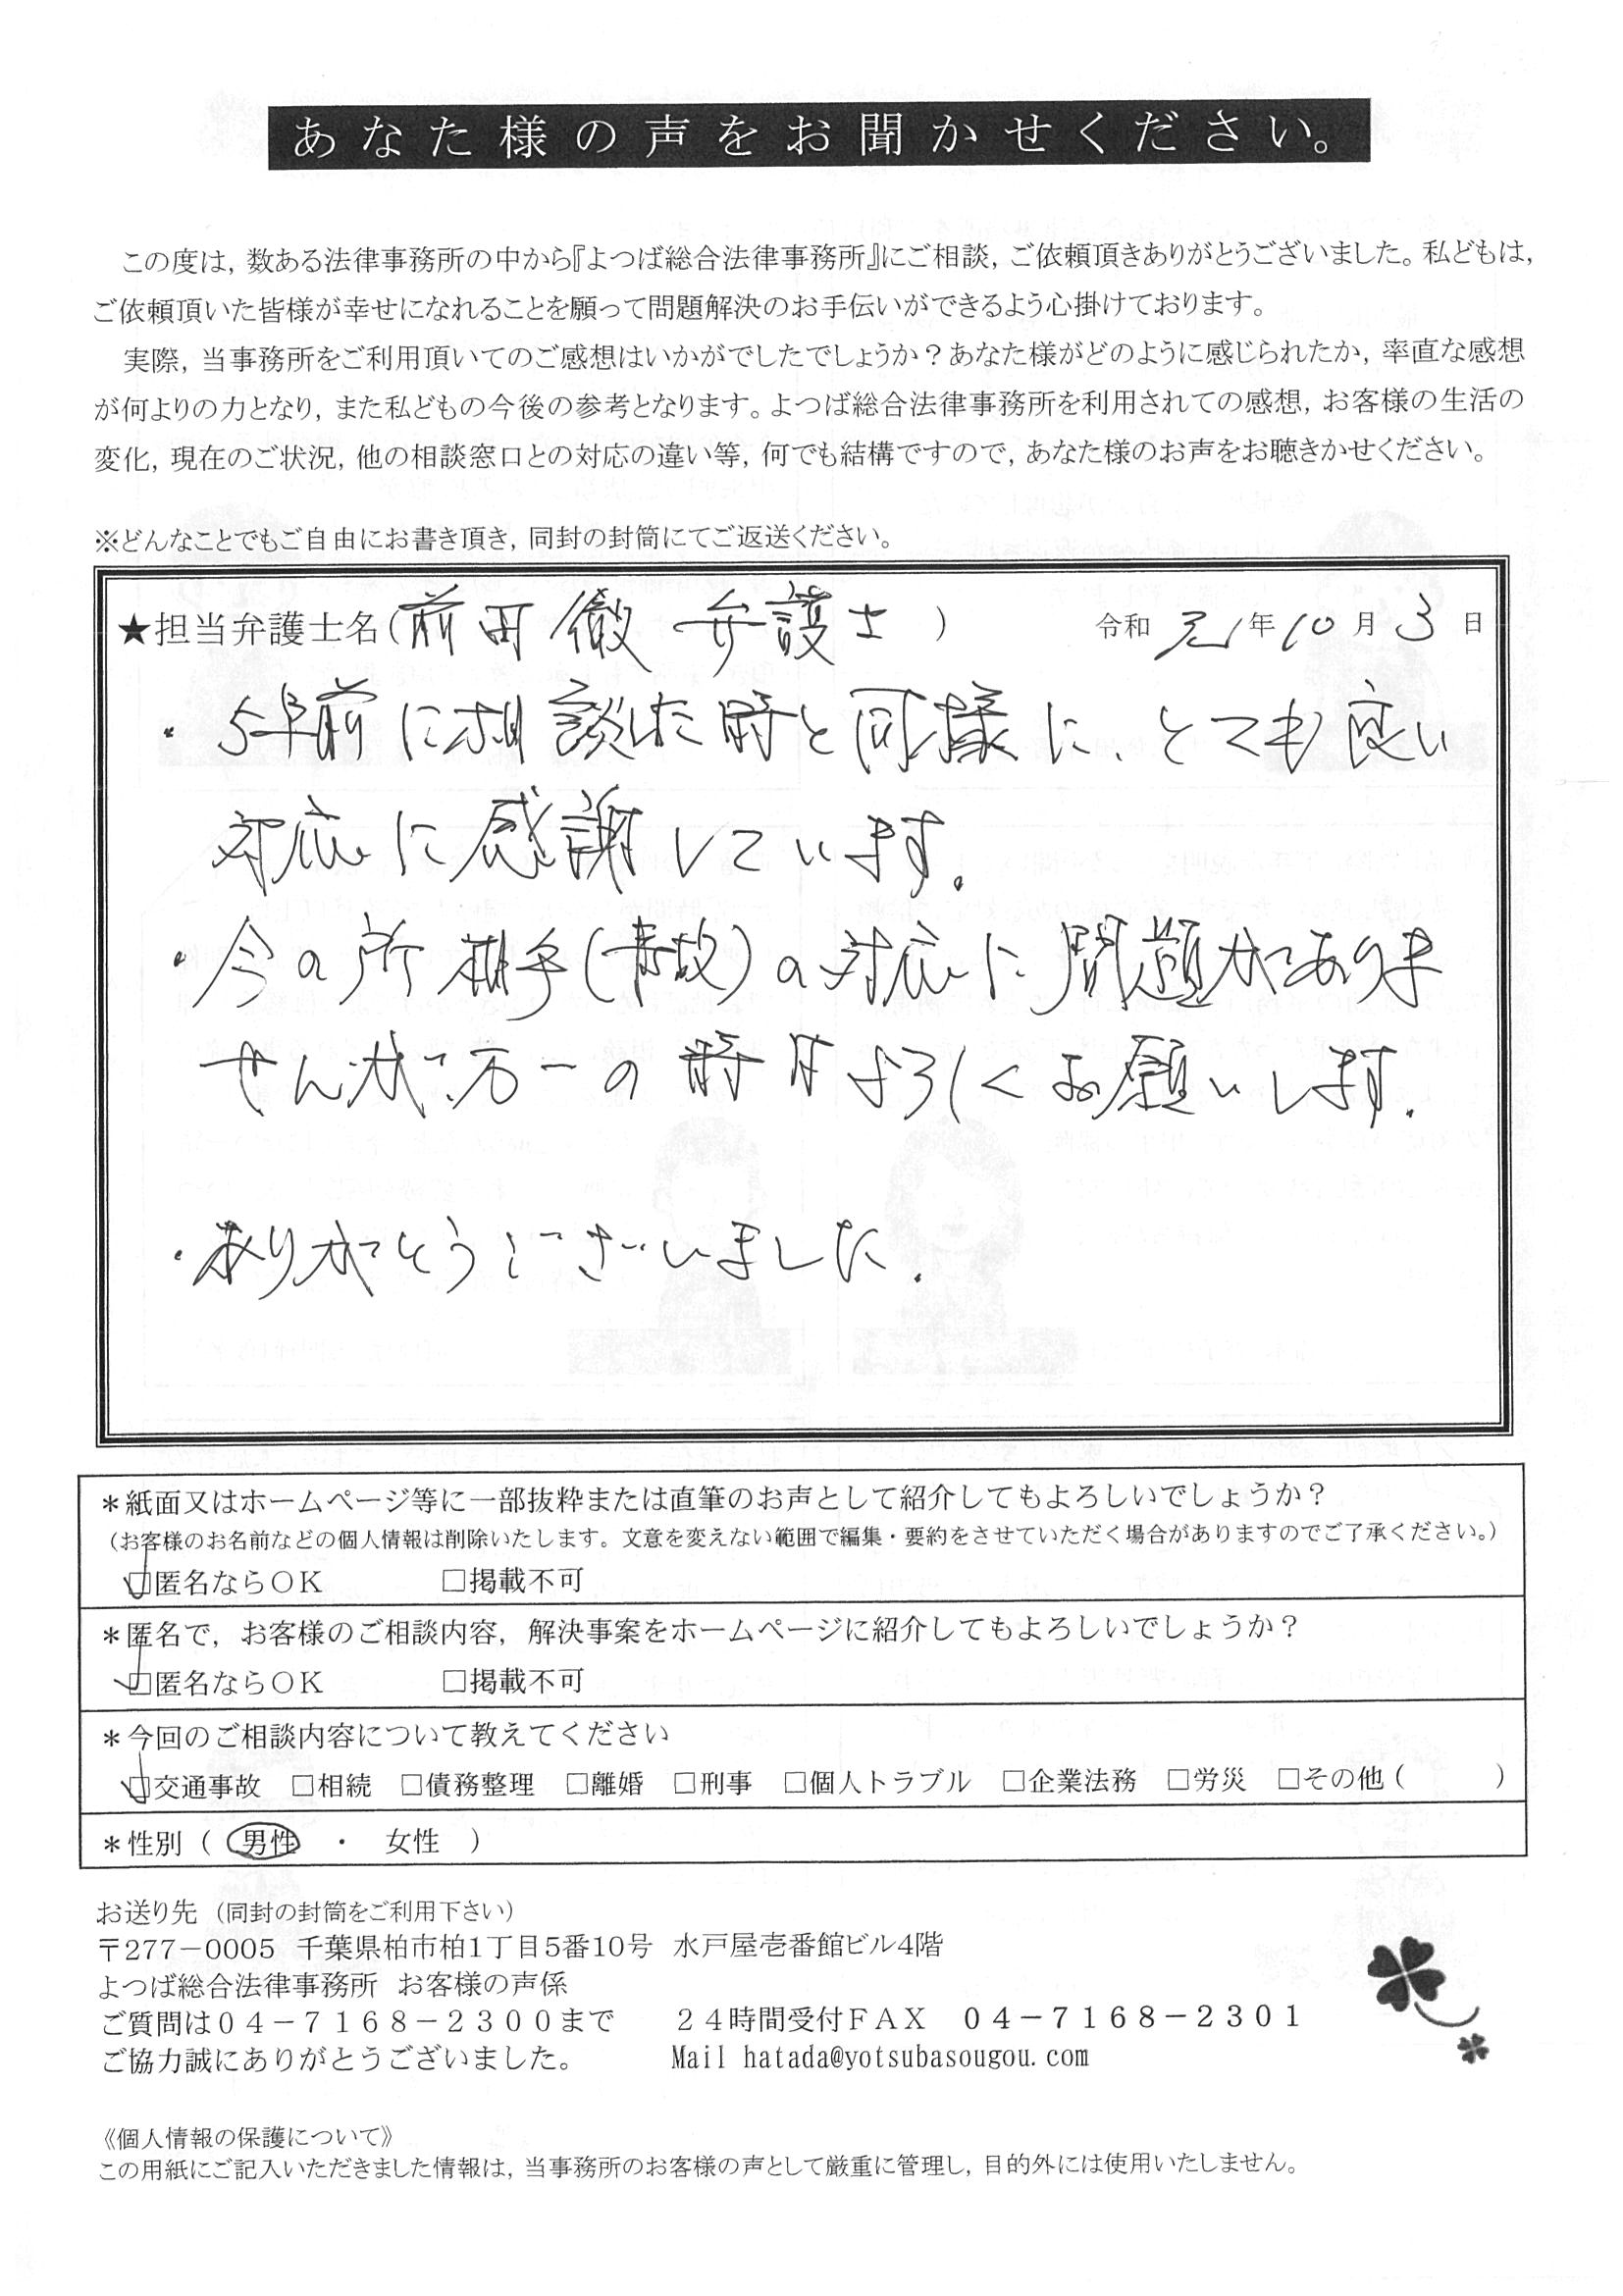 あなた様の声をお聞かせください。
この度は，数ある法律事務所の中から『よつば総合法律事務所』にご相談，ご依頼頂きありがとうございました。私どもは，
ご依頼頂いた皆様が幸せになれることを願って問題解決のお手伝いができるよう心掛けております。
実際，当事務所をご利用頂いてのご感想はいかがでしたでしょうか？あなた様がどのように感じられたか，率直な感想
が何よりの力となり，また私どもの今後の参考となります。よつば総合法律事務所を利用されての感想，お客様の生活の
変化，現在のご状況，他の相談窓口との対応の違い等，何でも結構ですので，あなた様のお声をお聴きかせください。
※どんなことでもご自由にお書き頂き，同封の封筒にてご返送ください。
★担当弁護士名（前田徹 弁護士） 令和元年10月3日
・5年前に相談した時と同様に、とても良い
対応に感謝しています。
・今の所相手(事故)の対応に問題がありま
せんが、万一の時はよろしくお願いします。
・ありがとうございました。
＊紙面又はホームページ等に一部抜粋または直筆のお声として紹介してもよろしいでしょうか？
（お客様のお名前などの個人情報は削除いたします。文意を変えない範囲で編集・要約をさせていただく場合がありますのでご了承ください。）
☑匿名ならＯＫ □掲載不可
＊匿名で，お客様のご相談内容，解決事案をホームページに紹介してもよろしいでしょうか？
☑匿名ならＯＫ □掲載不可
＊今回のご相談内容について教えてください
☑交通事故 □相続 □債務整理 □離婚 □刑事 □個人トラブル □企業法務 □労災 □その他（ ）
＊性別（ 男性 ・ 女性 ）
お送り先（同封の封筒をご利用下さい）
〒277－0005 千葉県柏市柏1丁目5番10号 水戸屋壱番館ビル4階
よつば総合法律事務所 お客様の声係
ご質問は０４－７１６８－２３００まで ２４時間受付ＦＡＸ ０４－７１６８－２３０１
ご協力誠にありがとうございました。 Mail hatada@yotsubasougou.com
《個人情報の保護について》
この用紙にご記入いただきました情報は，当事務所のお客様の声として厳重に管理し，目的外には使用いたしません。